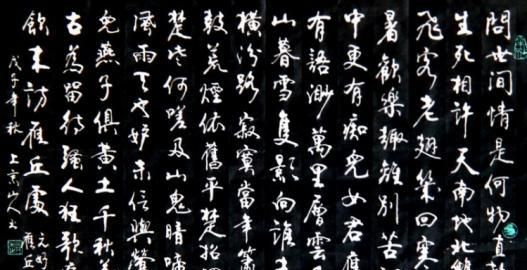 問世間情是何物直
生死相許天南地北
飛客老翅幾回寒
暑歡樂趣離別苦
中更有痴兒女君應
有語渺萬里層雲
山暮雪隻影向誰
橫汾路寂寞當年簫
鼓荒煙依舊平楚招
楚些何嗟及山鬼暗啼
風雨天也妒未信與鶯
兒燕子俱黃土千秋
古為留待騷人狂歌
飲來訪雁丘處
元好
雁丘
戊子年秋上京山人書